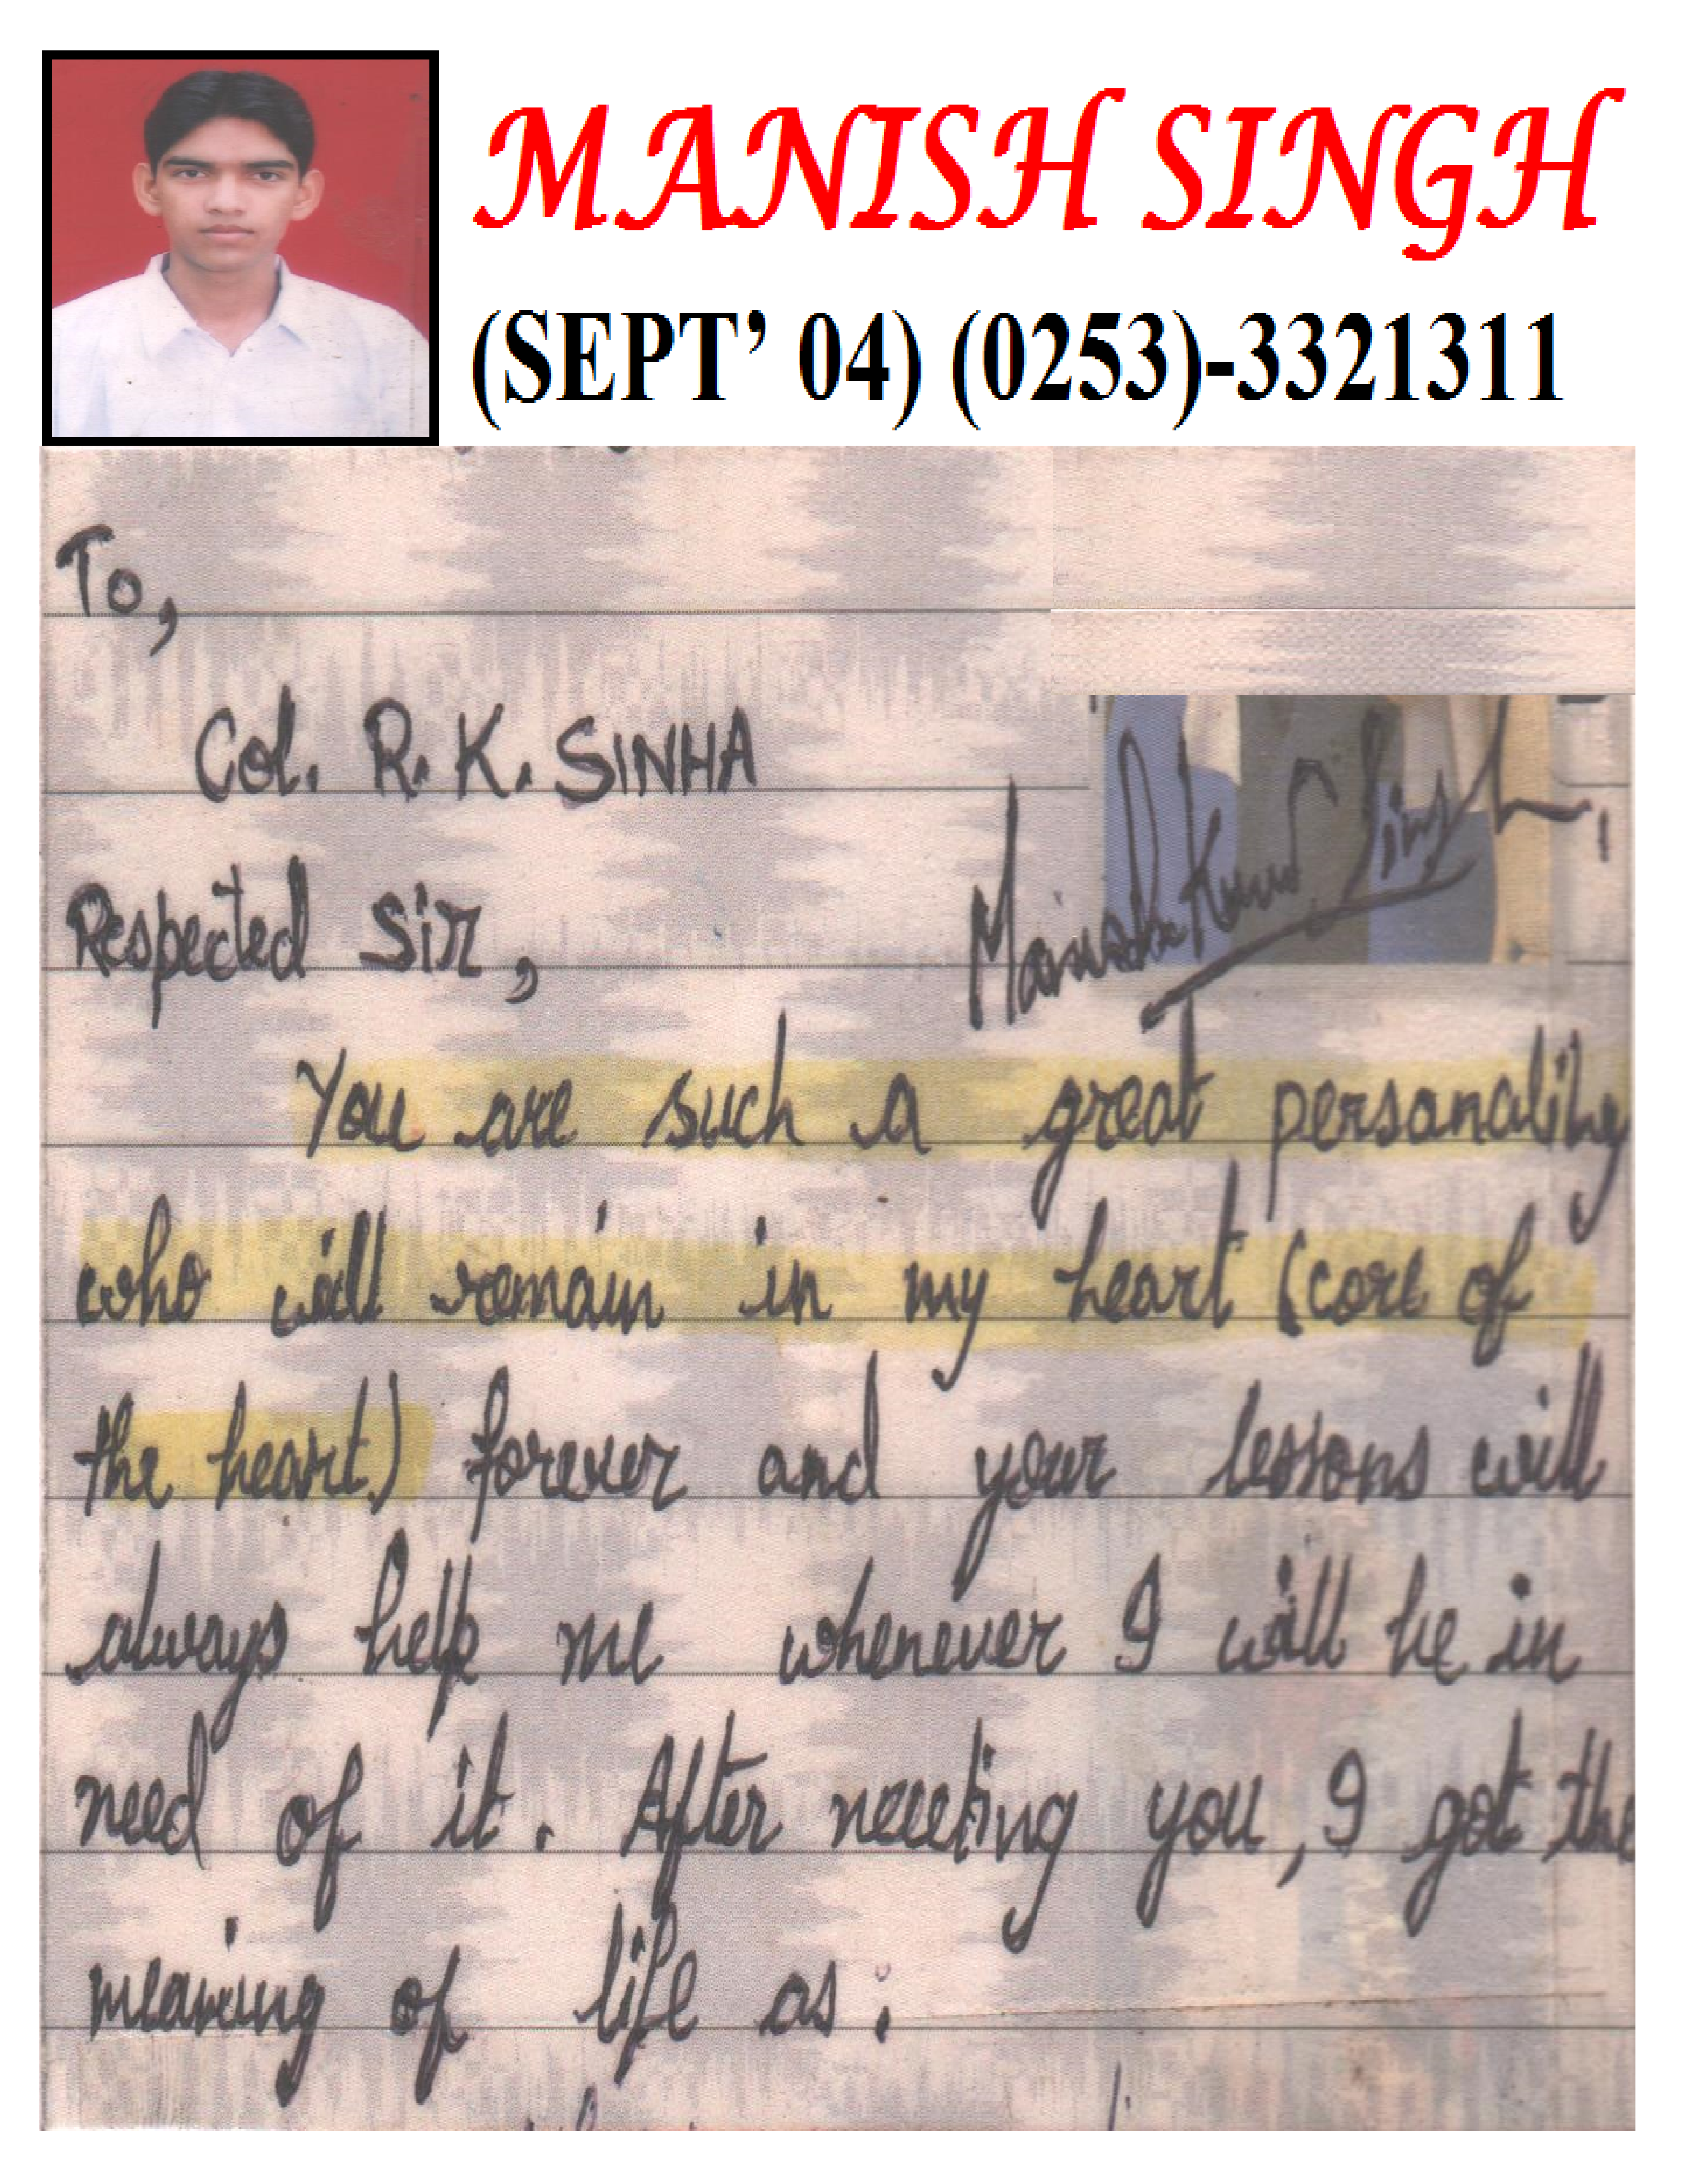 MANISH SINGH
(SEPT’ 04) (0253)-3321311
To,
Col. R. K. SINHA
Respected Sir,
Manish Kumar Singh
You are such a great personality
who will remain in my heart (core of
the heart) forever and your lessons will
always help me whenever I will be in
need of it. After meeting you, I got the
meaning of life as: